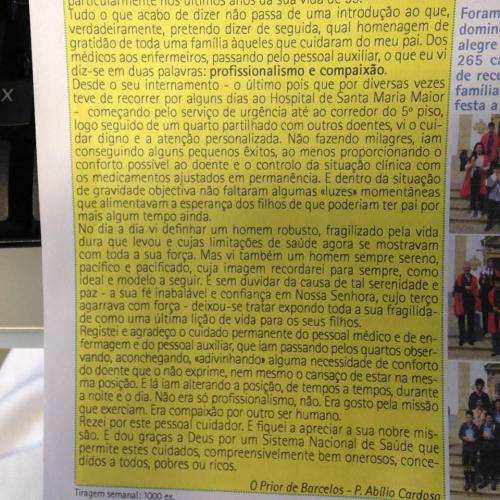 particularmente nos últimos anos da sua vida de 95.
Tudo o que acabo de dizer não passa de uma introdução ao que,
verdadeiramente, pretendo dizer de seguida, qual homenagem de
gratidão de toda uma família àqueles que cuidaram do meu pai. Dos
médicos aos enfermeiros, passando pelo pessoal auxiliar, o que eu vi
diz-se em duas palavras: profissionalismo e compaixão.
Desde o seu internamento - o último pois que por diversas vezes
teve de recorrer por alguns dias ao Hospital de Santa Maria Maior
- começando pelo serviço de urgência até ao corredor do 5º piso,
logo seguido de um quarto partilhado com outros doentes, vi o cui-
dar digno e a atenção personalizada. Não fazendo milagres, iam
conseguindo alguns pequenos êxitos, ao menos proporcionando o
conforto possivel ao doente e o controlo da situação clínica com
os medicamentos ajustados em permanência. E dentro da situação
de gravidade objectiva não faltaram algumas «luzes» momentâneas
que alimentavam a esperança dos filhos de que poderiam ter pai por
mais algum tempo ainda.
No dia a dia vi definhar um homem robusto, fragilizado pela vida
dura que levou e cujas limitações de saúde agora se mostravam
com toda a sua força. Mas vi também um homem sempre sereno,
pacífico e pacificado, cuja imagem recordarei para sempre, como
ideal e modelo a seguir. E sem duvidar da causa de tal serenidade e
paz - a sua fé inabalável e confiança em Nossa Senhora, cujo terço
agarrava com força - deixou-se tratar expondo toda a sua fragilida-
de como uma última lição de vida para os seus filhos.
Registei e agradeço o cuidado permanente do pessoal médico e de en-
fermagem e do pessoal auxiliar, que iam passando pelos quartos obser-
vando, aconchegando, «adivinhando» alguma necessidade de conforto
do doente que o não exprime, nem mesmo o cansaço de estar na mes-
ma posição. E lá iam alterando a posição, de tempos a tempos, durante
a noite e o dia. Não era só profissionalismo, não. Era gosto pela missão
que exerciam. Era compaixão por outro ser humano.
Rezei por este pessoal cuidador. E fiquei a apreciar a sua nobre mis-
são. E dou graças a Deus por um Sistema Nacional de Saúde que
permite estes cuidados, compreensivelmente bem onerosos, conce-
didos a todos, pobres ou ricos.
O Prior de Barcelos - P. Abílio Cardoso
Tiragem semanal: 1000 ex.
Foram
doming
alegre
265 ca
de reco
família
festa a
X